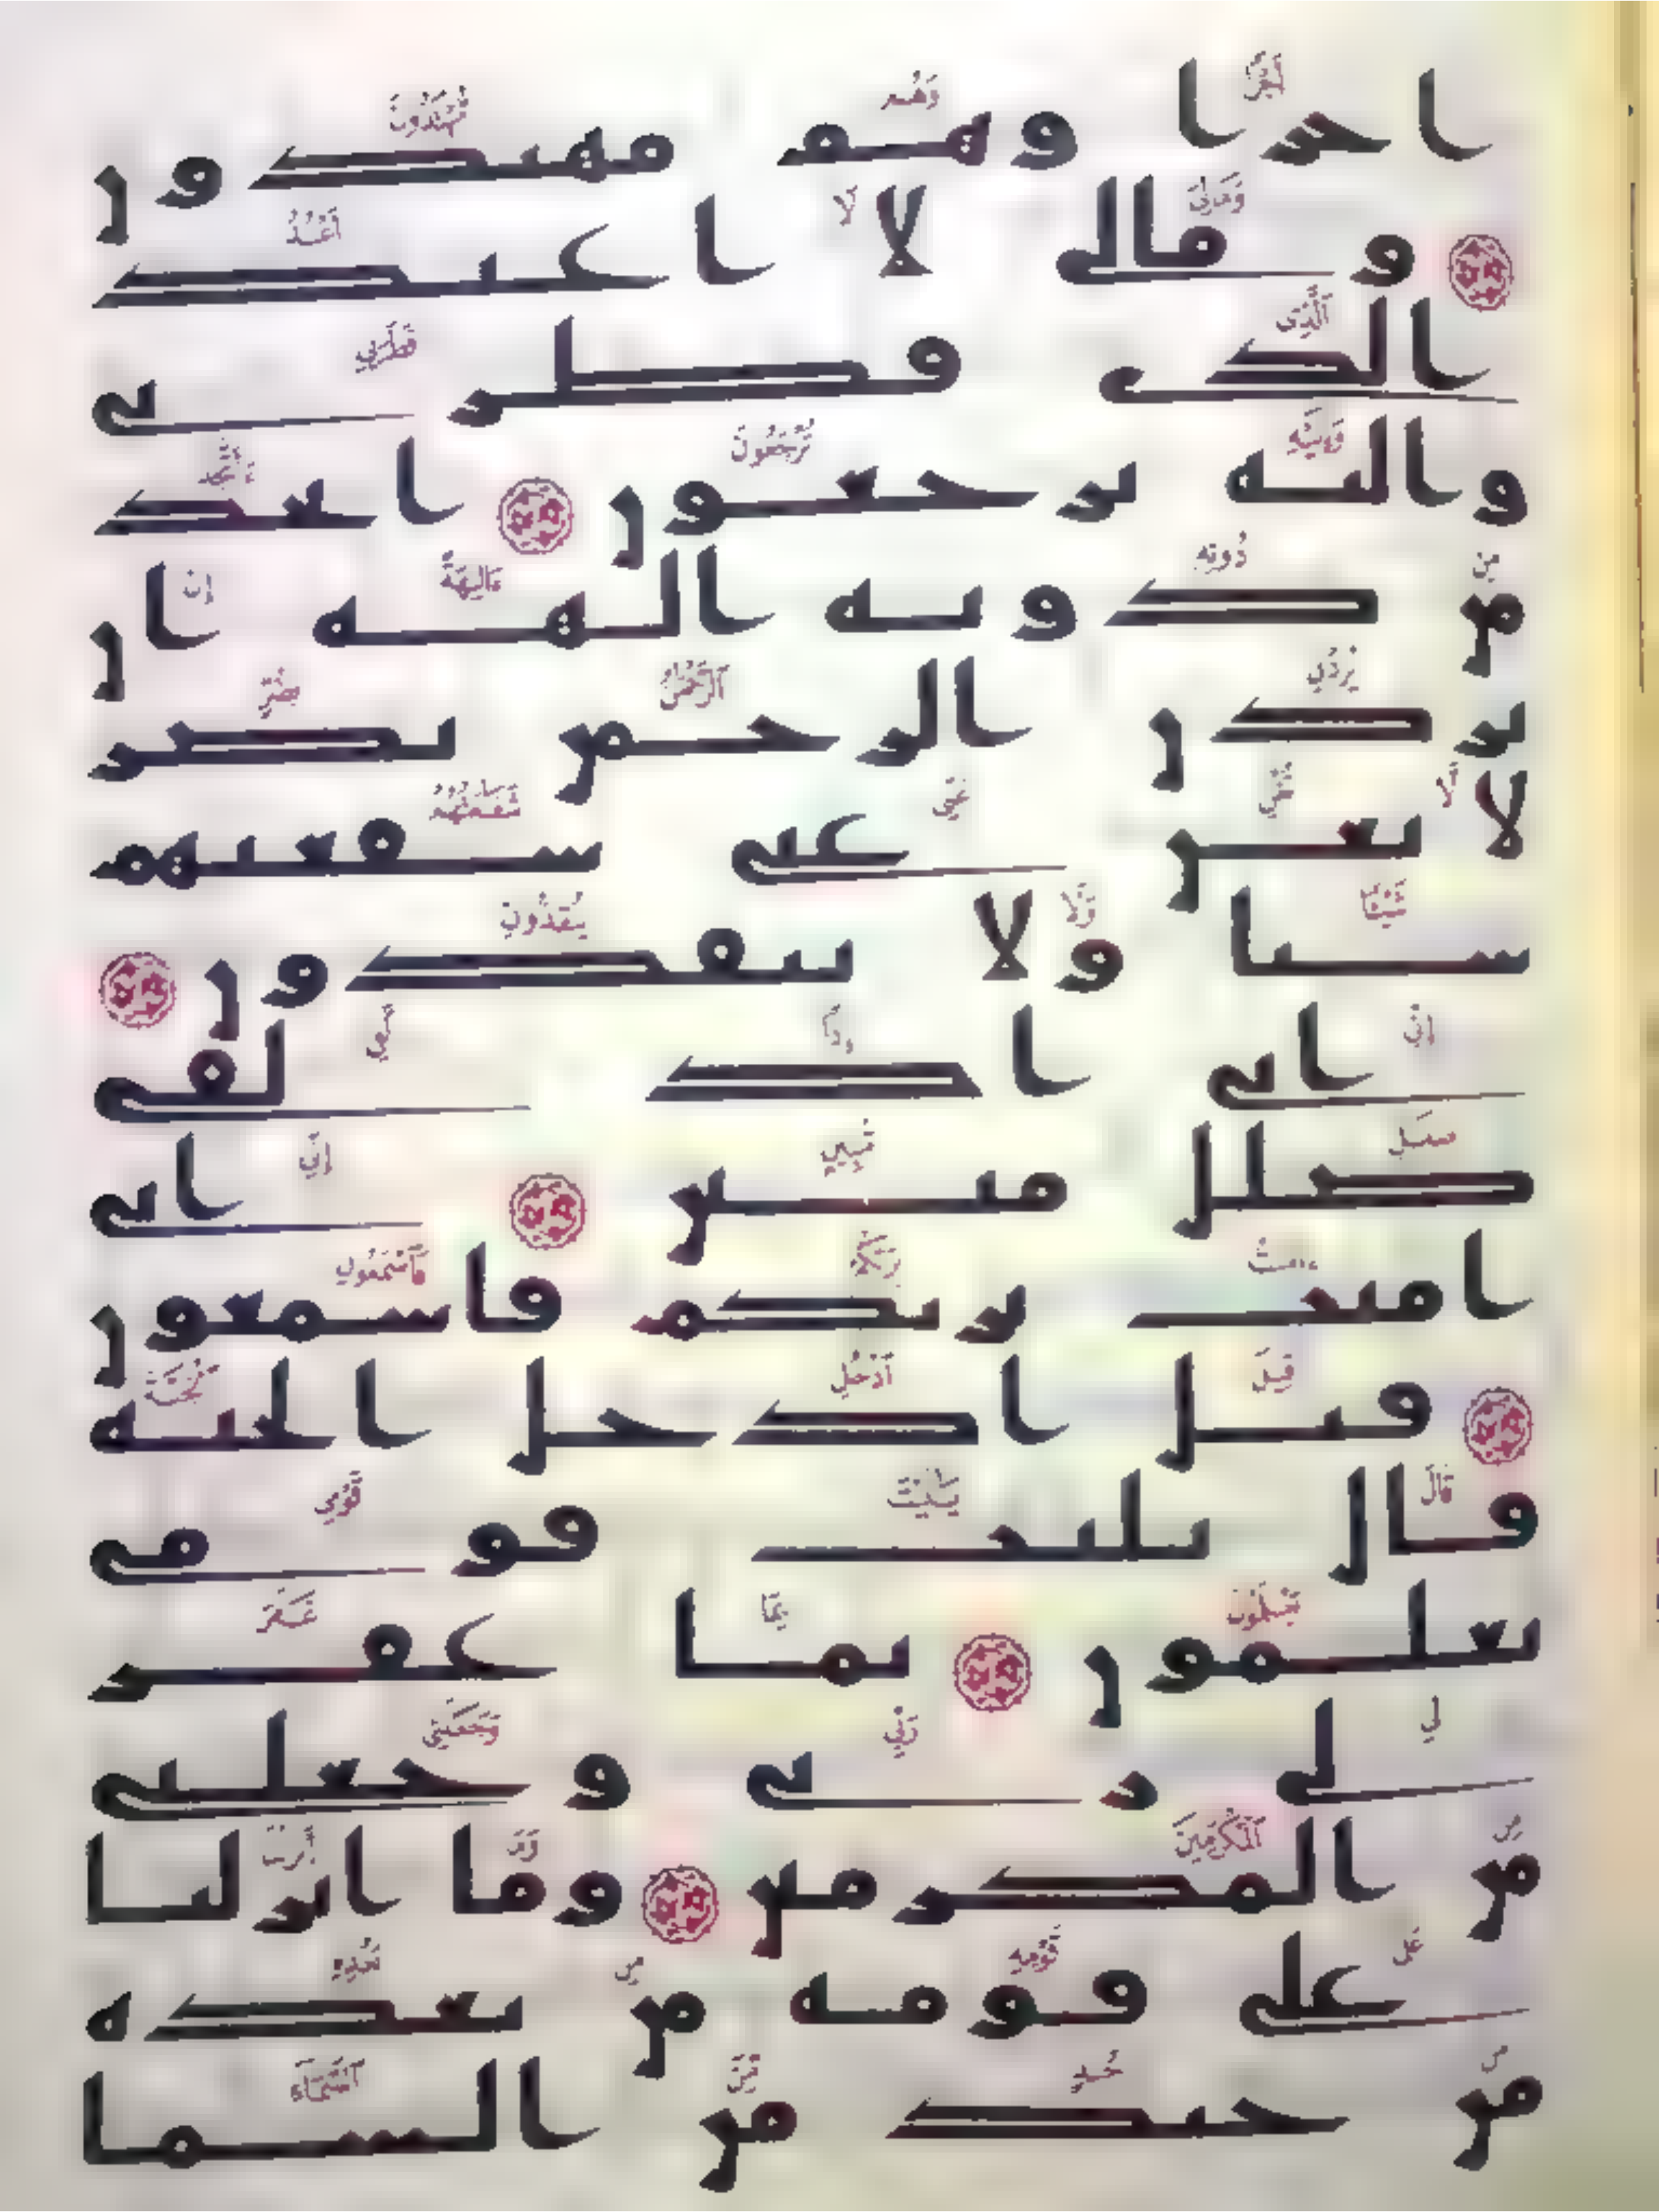 اجرا وهم مهتدون
ومالي لا اعبد
الذي فطرني
واليه ترجعون اتخذ
من دونه الهه ان
يردن الرحمن بضر
لا تغن عني شفعتهم
شيا ولا ينقذون
اني اذا لفي
ضلل مبين اني
امنت بربكم فاسمعون
قيل ادخل الجنه
قال يليت قومي
يعلمون بما غفر
لي ربي وجعلني
من المكرمين وما انزلنا
على قومه من بعده
من جند من السما